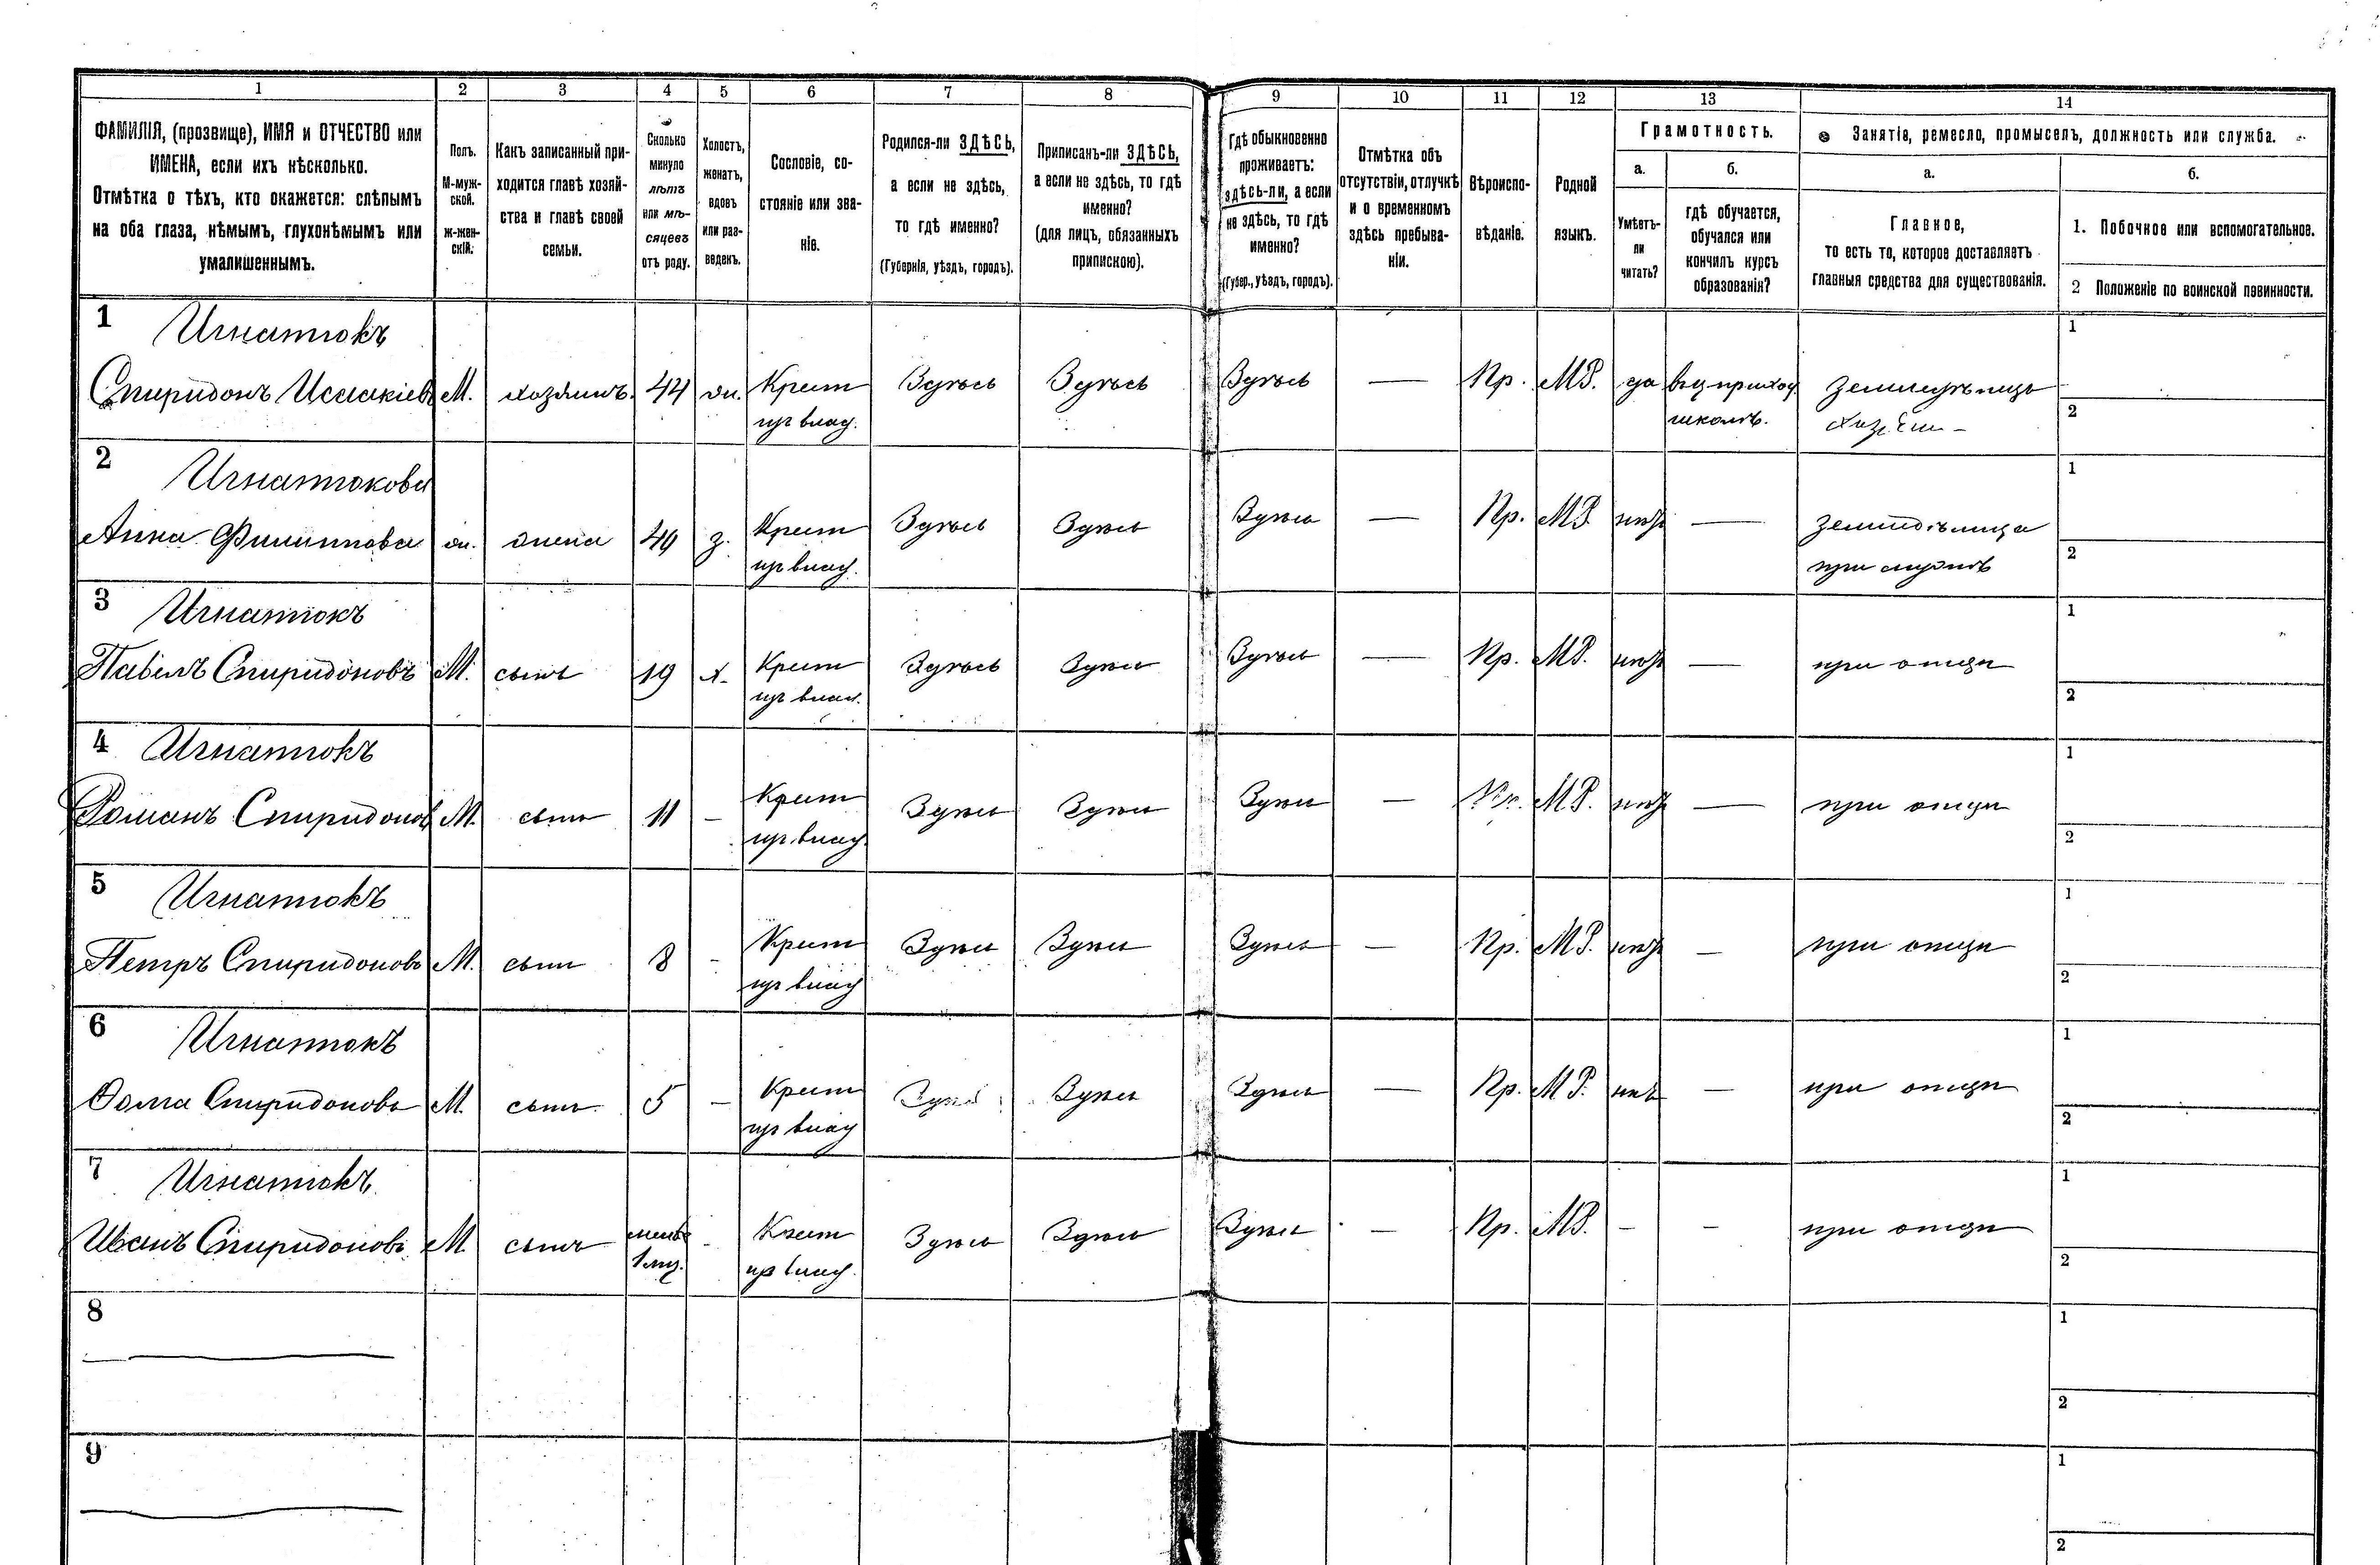 1 2 3 4 5 6 7 8 9 10 11 12 13 14
ФАМИЛІЯ, (прозвище), ИМЯ и ОТЧЕСТВО или
ИМЕНА, если ихъ нѣсколько.
Отмѣтка о тѣхъ, кто окажется: слѣпымъ
на оба глаза, нѣмымъ, глухонѣмымъ или
умалишеннымъ.
Полъ.
М-муж-
ской.
ж-жен-
скій.
Какъ записанный при-
ходится главѣ хозяй-
ства и главѣ своей
семьи.
Сколько
минуло
лѣтъ
или мѣ-
сяцевъ
отъ роду.
Холостъ,
женатъ,
вдовъ
или раз-
веденъ.
Сословіе, со-
стояніе или зва-
ніе.
Родился-ли ЗДѢСЬ,
а если не здѣсь,
то гдѣ именно?
(Губернія, уѣздъ, городъ).
Приписанъ-ли ЗДѢСЬ,
а если не здѣсь, то гдѣ
именно?
(для лицъ, обязанныхъ
припискою).
Гдѣ обыкновенно
проживаетъ:
здѣсь-ли, а если
не здѣсь, то гдѣ
именно?
(Губер., уѣздъ, городъ).
Отмѣтка объ
отсутствіи, отлучкѣ
и о временномъ
здѣсь пребыва-
ніи.
Вѣроиспо-
вѣданіе.
Родной
языкъ.
Грамотность.
а.
Умѣетъ-
ли
читать?
б.
гдѣ обучается,
обучался или
кончилъ курсъ
образованія?
Занятіе, ремесло, промыселъ, должность или служба.
а.
Главное,
то есть то, которое доставляетъ
главныя средства для существованія.
б.
1. Побочное или вспомогательное.
2 Положеніе по воинской повинности.
1 Игнатюкъ
Спиридонъ Исаакіевъ М. хозяинъ. 44 ж. Крест Здѣсь Здѣсь Здѣсь — Пр. МР. да въ ц приход земледѣлецъ
изъ влад. школѣ. хозяин
1
2
2 Игнатюкова
Анна Филиппова ж. жена 40 з. Крест Здѣсь Здѣсь Здѣсь — Пр. МР. нѣтъ — земледѣлица
изъ влад. при мужѣ
1
2
3 Игнатюкъ
Павелъ Спиридоновъ М. сынъ 19 х. Крест Здѣсь Здѣсь Здѣсь — Пр. МР. нѣтъ — при отцѣ
изъ влад.
1
2
4 Игнатюкъ
Романъ Спиридоновъ М. сынъ 11 — Крест Здѣсь Здѣсь Здѣсь — Пр. МР. нѣтъ — при отцѣ
изъ влад.
1
2
5 Игнатюкъ
Петръ Спиридоновъ М. сынъ 8 - Крест Здѣсь Здѣсь Здѣсь — Пр. МР. нѣтъ — при отцѣ
изъ влад
1
2
6 Игнатюкъ
Ѳома Спиридоновъ М. сынъ 5 — Крест Здѣсь Здѣсь Здѣсь — Пр. МР. нѣтъ — при отцѣ
изъ влад
1
2
7 Игнатюкъ
Иванъ Спиридоновъ М. сынъ менѣе - Крест Здѣсь Здѣсь Здѣсь — Пр. МР. — — при отцѣ
1 мѣс. изъ влад.
1
2
8
1
2
9
1
2